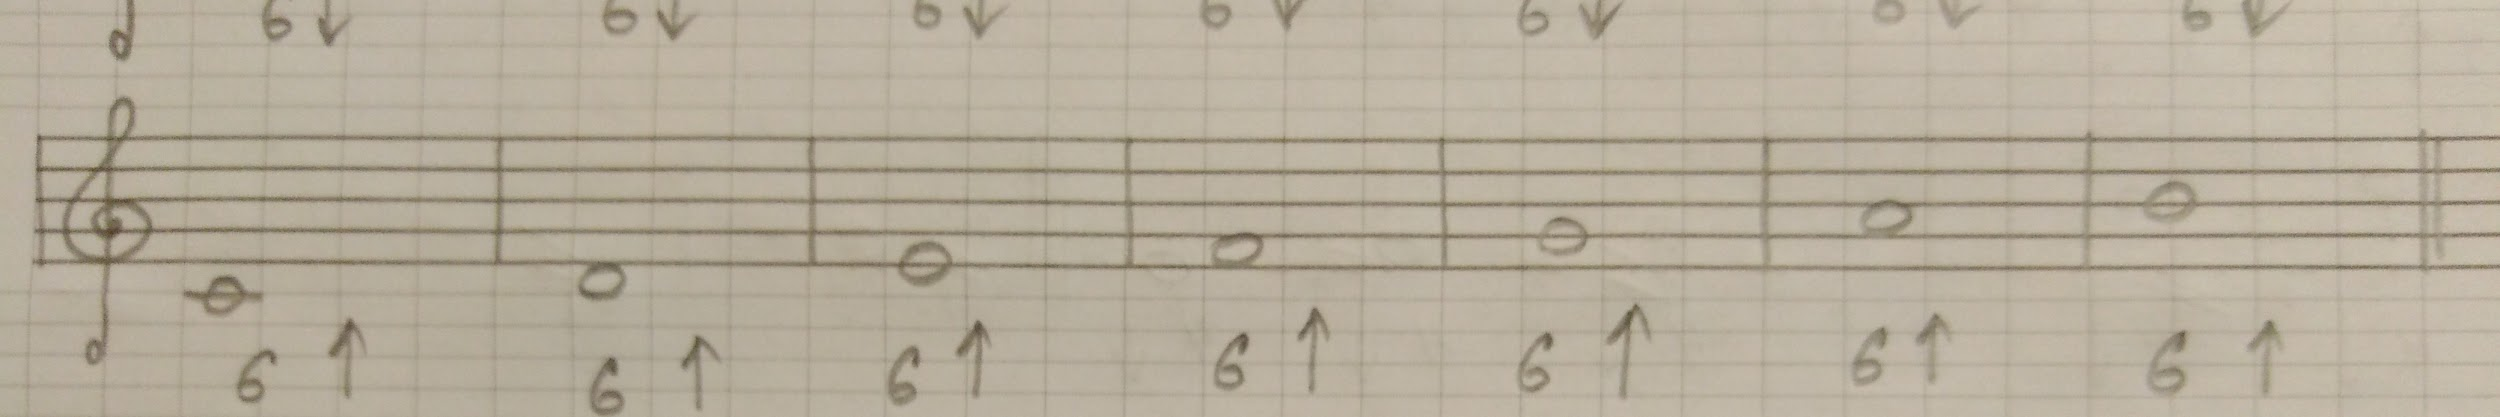 6↓ 6↓ 6↓ 6↓ 6↓ 6↓ 6↓
6↑ 6↑ 6↑ 6↑ 6↑ 6↑ 6↑